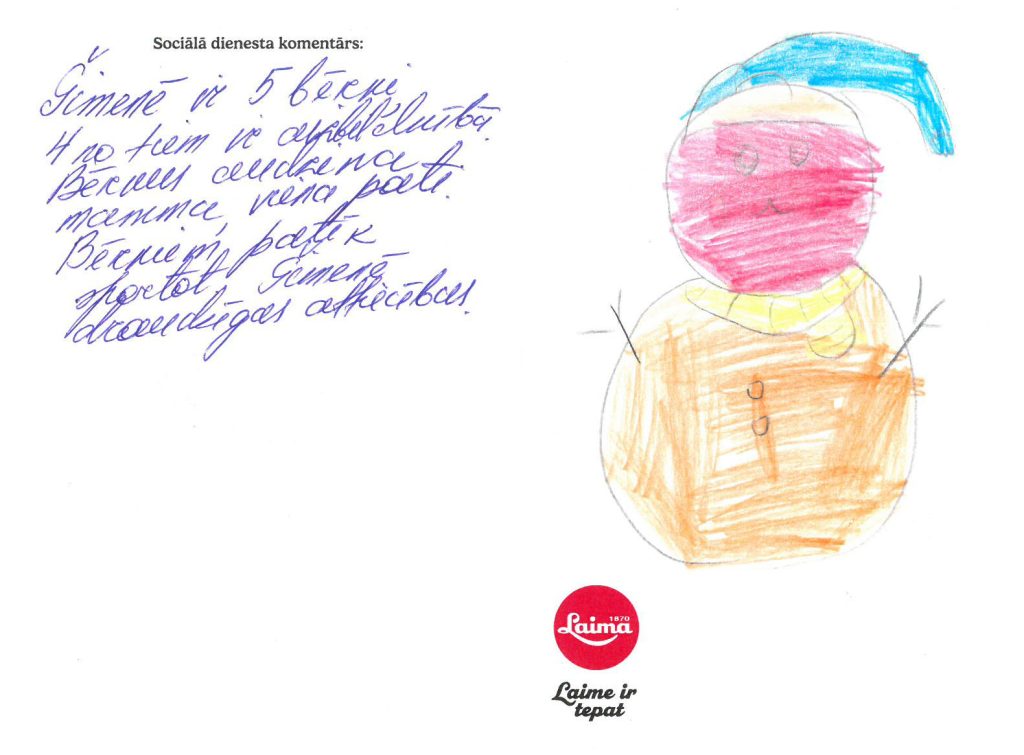 Sociālā dienesta komentārs:
Ģimenē ir 5 bērni
4 no tiem ir aizbildnībā.
Bērnus audzina
mamma, viena pati.
Bērniem patīk
sportot. Ģimenē
draudzīgas attiecības.
Laima
1870
Laime ir
tepat